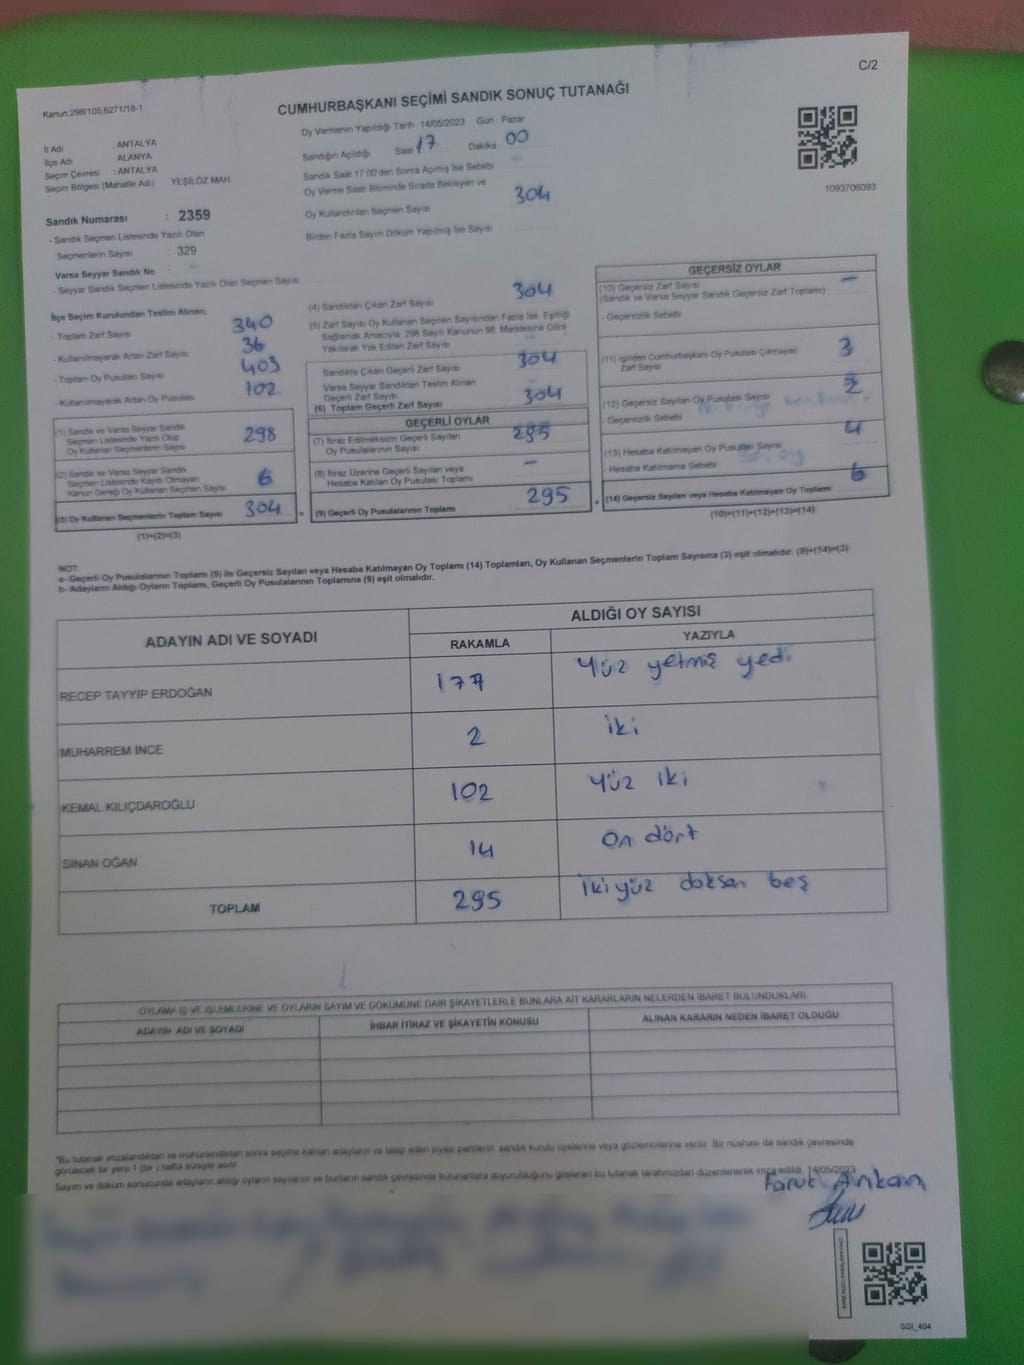 C/2
Kanun:298/105;6271/18-1
CUMHURBAŞKANI SEÇİMİ SANDIK SONUÇ TUTANAĞI
İl Adı ANTALYA
İlçe Adı ALANYA
Seçim Çevresi : ANTALYA
Seçim Bölgesi (Mahalle Adı) YEŞİLÖZ MAH.
Oy Vermenin Yapıldığı Tarih 14/05/2023 Gün Pazar
Sandığın Açıldığı Saat 17 Dakika 00
Sandık Saat 17:00'den Sonra Açılmış İse Sebebi
Oy Verme Saati Bitiminde Sırada Bekleyen ve
Oy Kullandırılan Seçmen Sayısı 304
Birden Fazla Sayım Döküm Yapılmış İse Sayısı
1093706093
Sandık Numarası : 2359
- Sandık Seçmen Listesinde Yazılı Olan
Seçmenlerin Sayısı : 329
Varsa Seyyar Sandık No :
- Seyyar Sandık Seçmen Listesinde Yazılı Olan Seçmen Sayısı:
İlçe Seçim Kurulundan Teslim Alınan;
- Toplam Zarf Sayısı 340
- Kullanılmayarak Artan Zarf Sayısı 36
- Toplam Oy Pusulası Sayısı 403
- Kullanılmayarak Artan Oy Pusulası 102
(1) Sandık ve Varsa Seyyar Sandık
Seçmen Listesinde Yazılı Olup
Oy Kullanan Seçmenlerin Sayısı 298
(2) Sandık ve Varsa Seyyar Sandık
Seçmen Listesinde Kayıtlı Olmayan
Kanun Gereği Oy Kullanan Seçmen Sayısı 6
(3) Oy Kullanan Seçmenlerin Toplam Sayısı 304 =
(1)+(2)=(3)
(4) Sandıktan Çıkan Zarf Sayısı 304
(5) Zarf Sayısı Oy Kullanan Seçmen Sayısından Fazla İse, Eşitliği
Sağlamak Amacıyla, 298 Sayılı Kanunun 98. Maddesine Göre
Yakılarak Yok Edilen Zarf Sayısı
Sandıkta Çıkan Geçerli Zarf Sayısı 304
Varsa Seyyar Sandıktan Teslim Alınan
Geçerli Zarf Sayısı
(6) Toplam Geçerli Zarf Sayısı 304
GEÇERLİ OYLAR
(7) İtiraz Edilmeksizin Geçerli Sayılan
Oy Pusulalarının Sayısı 295
(8) İtiraz Üzerine Geçerli Sayılan veya
Hesaba Katılan Oy Pusulası Toplamı –
(9) Geçerli Oy Pusulalarının Toplamı 295 +
GEÇERSİZ OYLAR
(10) Geçersiz Zarf Sayısı –
(Sandık ve Varsa Seyyar Sandık Geçersiz Zarf Toplamı)
- Geçersizlik Sebebi
(11) İçinden Cumhurbaşkanı Oy Pusulası Çıkmayan
Zarf Sayısı 3
(12) Geçersiz Sayılan Oy Pusulası Sayısı
- Geçersizlik Sebebi
(13) Hesaba Katılmayan Oy Pusulası Sayısı 4
- Hesaba Katılmama Sebebi
(14) Geçersiz Sayılan veya Hesaba Katılmayan Oy Toplamı
(10)+(11)+(12)+(13)=(14)
NOT:
a- Geçerli Oy Pusulalarının Toplamı (9) ile Geçersiz Sayılan veya Hesaba Katılmayan Oy Toplamı (14) Toplamları, Oy Kullanan Seçmenlerin Toplam Sayısına (3) eşit olmalıdır. (9)+(14)=(3)
b- Adayların Aldığı Oyların Toplamı, Geçerli Oy Pusulalarının Toplamına (9) eşit olmalıdır.
ADAYIN ADI VE SOYADI ALDIĞI OY SAYISI
RAKAMLA YAZIYLA
RECEP TAYYİP ERDOĞAN 177 Yüz yetmiş yedi
MUHARREM İNCE 2 iki
KEMAL KILIÇDAROĞLU 102 Yüz iki
SİNAN OĞAN 14 On dört
TOPLAM 295 İki yüz doksan beş
OYLAMA İŞ VE İŞLEMLERİNE VE OYLARIN SAYIM VE DÖKÜMÜNE DAİR ŞİKAYETLERLE BUNLARA AİT KARARLARIN NELERDEN İBARET BULUNDUKLARI
ADAYIN ADI VE SOYADI İHBAR İTİRAZ VE ŞİKAYETİN KONUSU ALINAN KARARIN NEDEN İBARET OLDUĞU
*Bu tutanak imzalandıktan ve mühürlendikten sonra seçime katılan adayların ve talep eden siyasi partilerin sandık kurulu üyelerine veya gözlemcilerine verilir. Bir nüshası da sandık çevresinde
görülecek bir yere 1 (bir) hafta süreyle asılır.
Sayım ve döküm sonucunda adayların aldığı oyların sayılarını ve bunların sandık çevresinde bulunanlara duyurulduğunu gösteren bu tutanak tarafımızdan düzenlenerek imza edildi. 14/05/2023
Faruk Arıkan
SGI_404